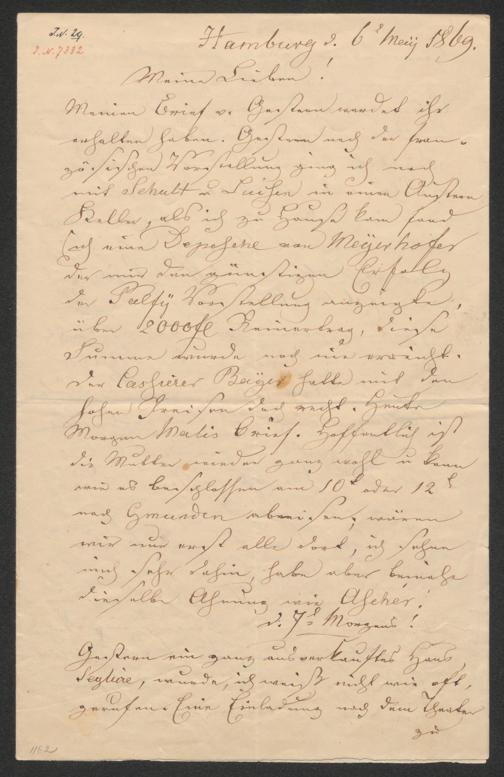 I.N. 29.
I.N. 7332
Hamburg d. 6t Meÿ 1869.
Meine Lieben!
Meinen Brief v. Gestern werdet ihr
erhalten haben. Gestern nach der fran-
zösischen Vorstellung ging ich noch
mit Schütt u Luise in einen Austern
Keller, als ich zu Hause kam fand
ich eine Depesche von Meyerhofer
der mir den günstigen Erfolg
der Palfy Vorstellung anzeigte,
über 2000fl Reinertrag, diese
Summe wurde noch nie erreicht.
Der Cassierer Bayer hatte mit den
hohen Preisen doch recht. Heute
Morgen Malis Brief. Hoffentlich ist
die Mutter wieder ganz wohl u kann
wie es beschlossen am 10t oder 12t
nach Gmunden abreisen, wären
wir nur erst alle dort, ich sehne
mich sehr dahin, habe aber beinahe
dieselbe Ahnung wie Ascher!
d. 7t Morgens!
Gestern ein ganz ausverkauftes Haus
Seglière, wurde, ich weiß nicht wie oft,
gerufen. Eine Einladung nach dem Theater
zu
1162